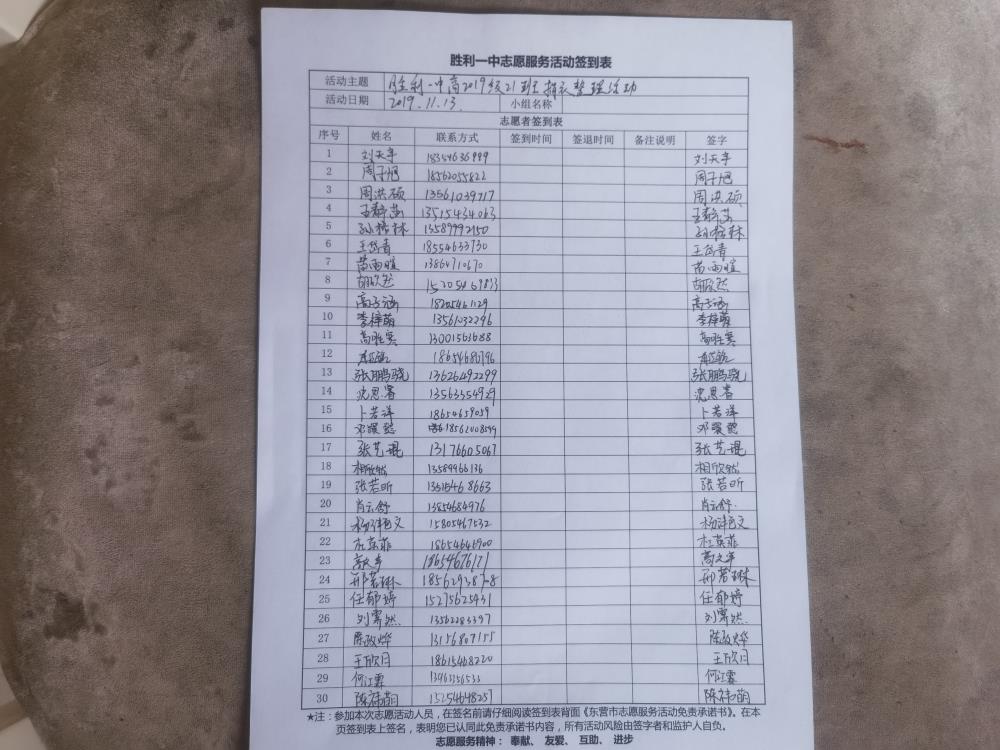 胜利一中志愿服务活动签到表
活动主题 胜利一中高2019级21班 整理活动
活动日期 2019.11.13. 小组名称
志愿者签到表
序号 姓名 联系方式 签到时间 签退时间 备注说明 签字
1 刘天宇 18354636999 刘天宇
2 周子旭 18562055822 周子旭
3 周洪硕 13561039717 周洪硕
4 王静茹 13515434063 王静茹
5 孙榕林 13589992150 孙榕林
6 王岱青 18554633730 王岱青
7 苗雨暄 13864710670 苗雨暄
8 胡欣然 胡欣然
9 高子涵 18205461129 高子涵
10 李梓萌 13561032296 李梓萌
11 高胜寒 13001563688 高胜寒
12 18654686796
13 张鹏骁 13626492299 张鹏骁
14 沈思睿 13563354929 沈思睿
15 卜若洋 18654659059 卜若洋
16 邓 18562008599 邓
17 张艺琨 13176605067 张艺琨
18 相欣然 13589966136 相欣然
19 张若昕 13515468663 张若昕
20 肖云舒 13854684976 肖云舒
21 15805467532
22 杜英菲 18654646900 杜英菲
23 高文宇 18654676171 高文宇
24 邢若琳 邢若琳
25 任郁婷 15275625431 任郁婷
26 刘霁然 13562283397 刘霁然
27 陈政烨 13156807155 陈政烨
28 王欣月 18615468220 王欣月
29 何江霖 何江霖
30 陈祎萌 15254648257 陈祎萌
★注：参加本次志愿活动人员，在签名前请仔细阅读签到表背面《东营市志愿服务活动免责承诺书》。在本
页签到表上签名，表明您已认同此免责承诺书内容，所有活动风险由签字者和监护人自负。
志愿服务精神：奉献、友爱、互助、进步